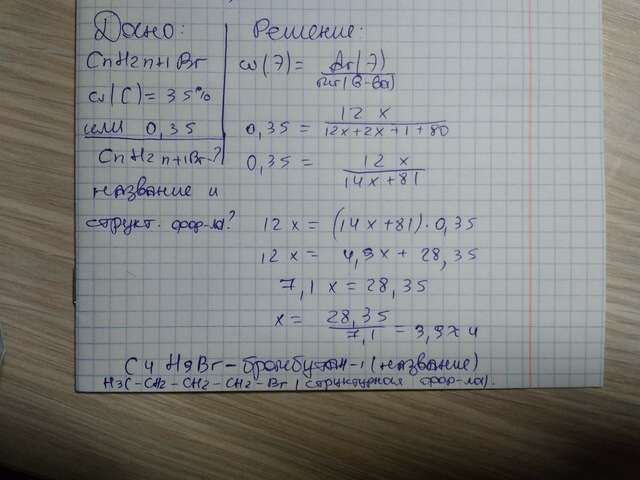 Дано:
CnH2n+1Br
ω(C) = 35%
или 0,35
CnH2n+1Br-?
название и
структ. фор-ла?
Решение:
ω(Э) = Ar(Э) / Mr(в-ва)
0,35 = 12x / 12x+2x+1+80
0,35 = 12x / 14x+81
12x = (14x+81)·0,35
12x = 4,9x + 28,35
7,1x = 28,35
x = 28,35 / 7,1 = 3,9≈4
C4H9Br – бромбутан-1 (название)
H3C-CH2-CH2-CH2-Br (структурная фор-ла).